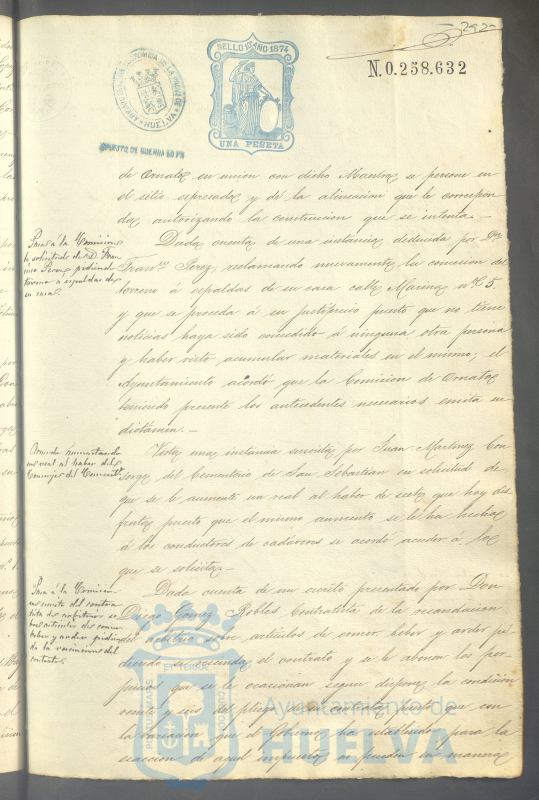 292
SELLO 10º AÑO 1874
UNA PESETA
N.0.258.632
HUELVA
IMPUESTO DE GUERRA 50 PS
de Ornato en union con dicho Maestro se persone en
el sitio espresado y dé la alineacion que le correspon
da, autorizando la construccion que se intenta.—
Pasa á la Comision
la solicitud de D. Fran
cisco Perez pidiendo
terreno a espaldas de
su casa.
Dada cuenta de una instancia deducida por Dn
Franco Perez, reclamando nuevamente la concesion del
terreno á espaldas de su casa calle Marina nº 5.
y que se proceda á su justiprecio puesto que no tiene
noticias haya sido concedido á ninguna otra persona
y haber visto acumular materiales en el mismo; el
Ayuntamiento acordó que la Comision de Ornato
teniendo presente los antecedentes necesarios emita su
dictámen.—
Acuerdo aumentando
un real al haber del
Conserje del Cementerio
Vista una instancia suscrita por Juan Martinez Con
serge del Cementerio de San Sebastian en solicitud de
que se le aumente un real al haber de siete que hoy dis
fruta puesto que el mismo aumento se le ha hecho
á los conductores de cadáveres se acordó acceder á lo
que se solicita.—
Pasa á la Comision
un escrito del contra
tista de arbitrios so
bre articulos de comer
beber y arder pidien
do la rescision del
contrato.
Dada cuenta de un escrito presentado por Don
Diego Gomez Robles Contratista de la recaudacion
del arbitrio sobre artículos de comer, beber y arder pi
diendo se rescinda el contrato y se le abonen los per
juicios que se le ocasionan segun dispone la condicion
veinte y seis del pliego de su contrato, puesto que con
la variacion que el Gobierno ha establecido para la
exaccion de aquel impuesto se pueden la manera
Ayuntamiento de
HUELVA